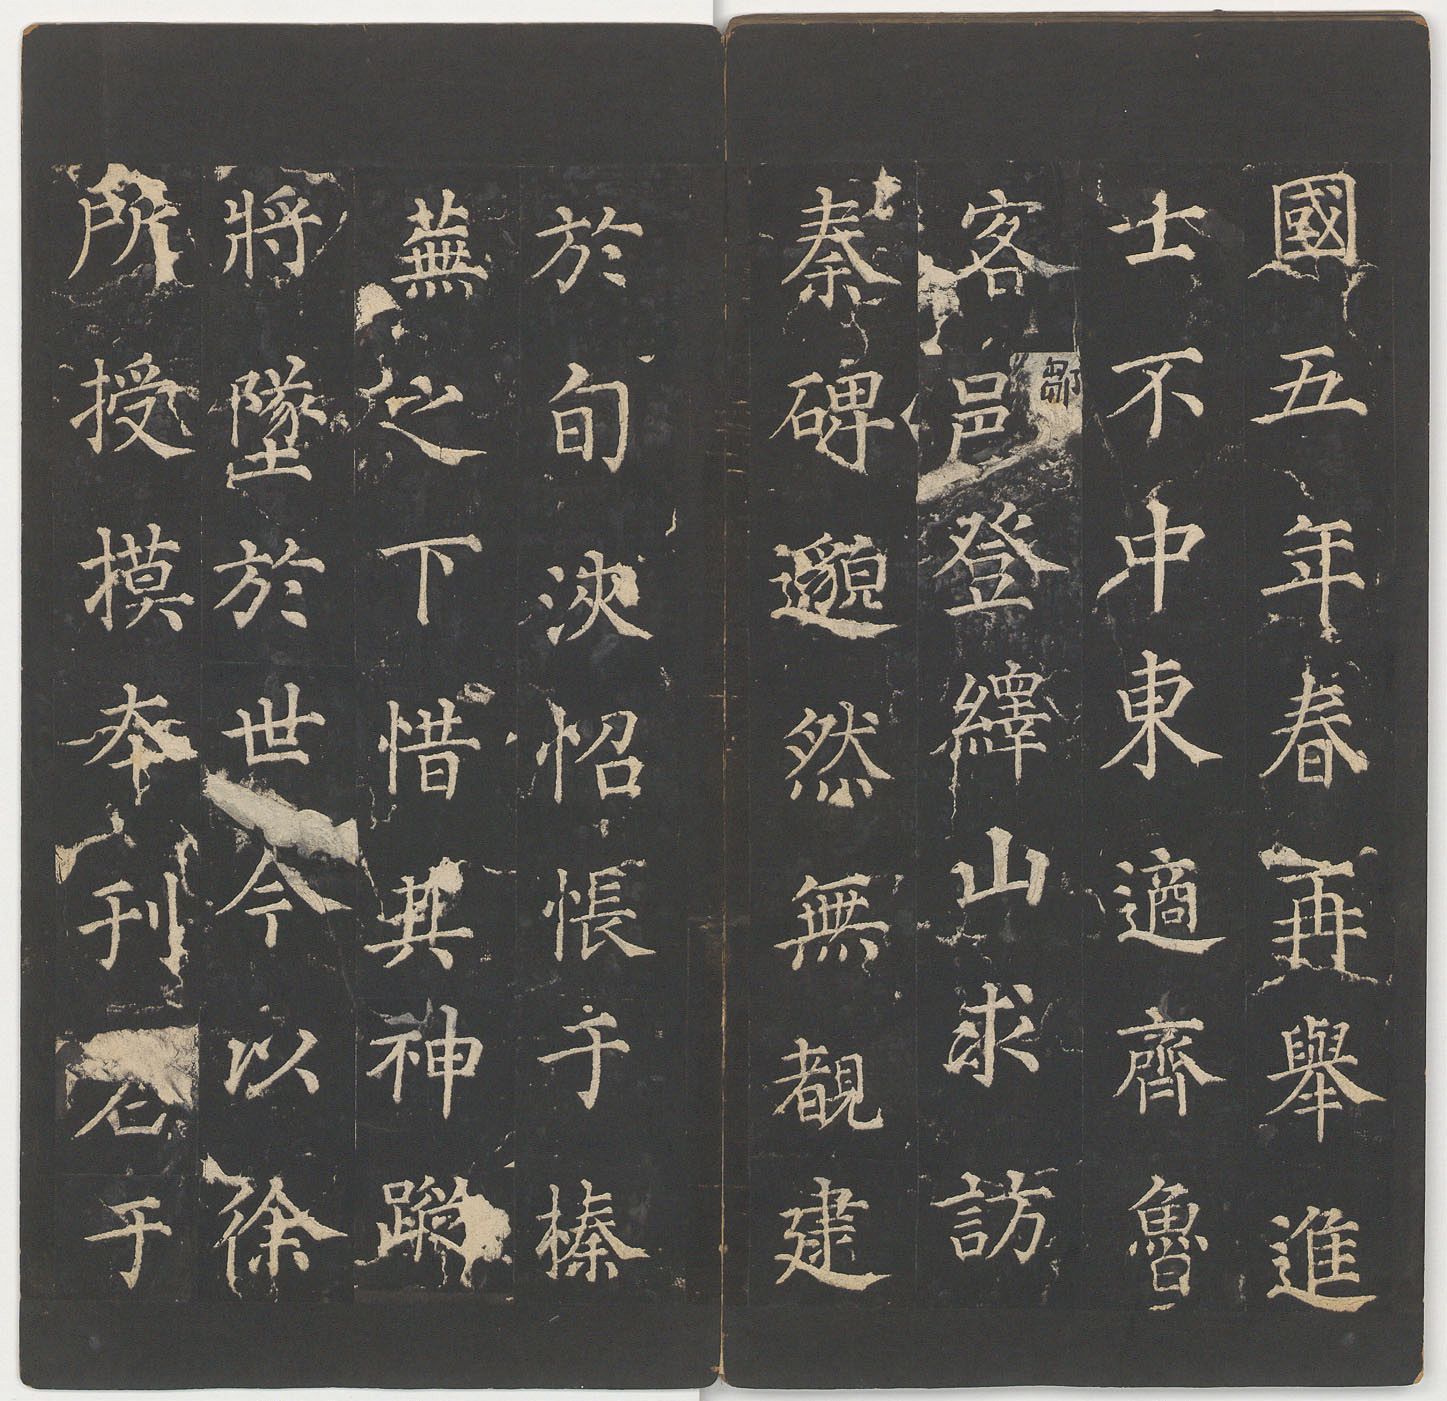 國五年春再舉進
士不中東適齊魯
客鄒邑登繹山求訪
秦碑邈然無覩建
於旬浹怊悵于榛
蕪之下惜其神蹤
將墜於世今以徐
所授摸本刊石于